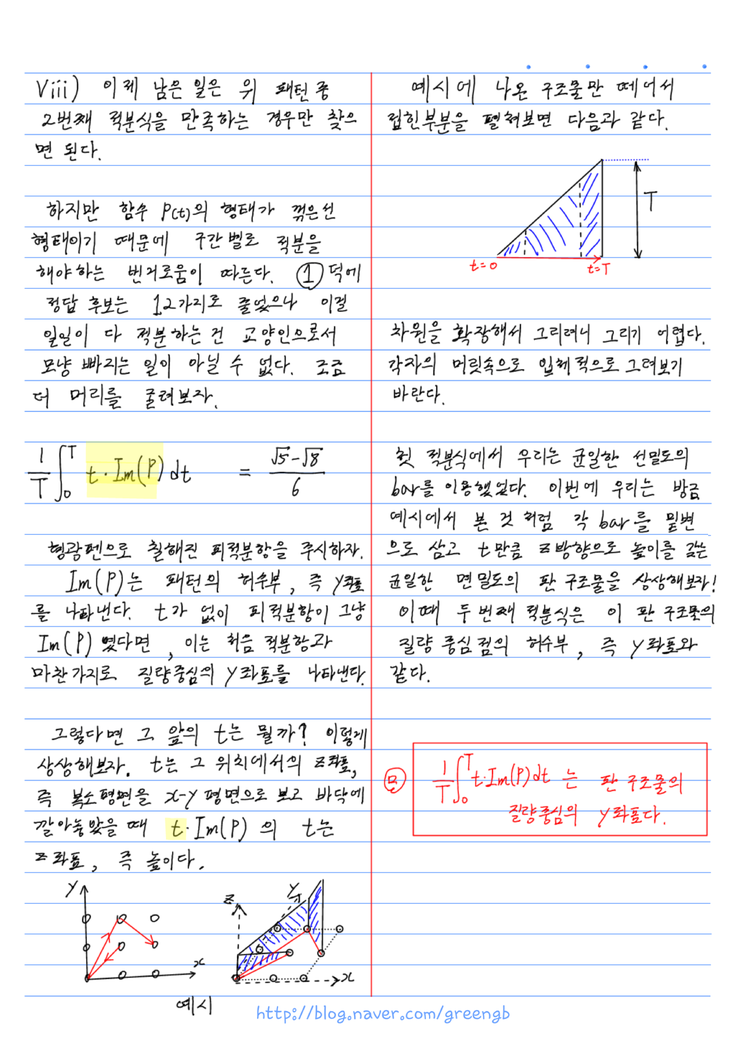 viii) 이제 남은 일은 위 패턴 중
2번째 적분식을 만족하는 경우만 찾으
면 된다.
하지만 함수 P(t)의 형태가 꺾은선
형태이기 때문에 구간별로 적분을
해야하는 번거로움이 따른다. ① 덕에
정답 후보는 12가지로 줄었으나 이걸
일일이 다 적분하는 건 교양인으로서
모냥 빠지는 일이 아닐 수 없다. 조금
더 머리를 굴려보자.
1/T ∫₀ᵀ t·Im(P) dt = (√5-√8)/6
형광펜으로 칠해진 피적분항을 주시하자.
Im(P)는 패턴의 허수부, 즉 y좌표
를 나타낸다. t가 없이 피적분항이 그냥
Im(P) 였다면, 이는 처음 적분항과
마찬가지로 질량중심의 y좌표를 나타낸다.
그렇다면 그 앞의 t는 뭘까? 이렇게
상상해보자. t는 그 위치에서의 z좌표,
즉 복소평면을 x-y평면으로 보고 바닥에
깔아놓았을 때 t·Im(P) 의 t는
z좌표, 즉 높이다.
y
x
예시
z
y
x
예시에 나온 구조물만 떼어서
접힌부분을 펼쳐보면 다음과 같다.
T
t=0
t=T
차원을 확장해서 그리려니 그리기 어렵다.
각자의 머릿속으로 입체적으로 그려보기
바란다.
첫 적분식에서 우리는 균일한 선밀도의
bar를 이용했었다. 이번에 우리는 방금
예시에서 본 것처럼 각 bar를 밑변
으로 삼고 t만큼 z방향으로 높이를 갖는
균일한 면밀도의 판 구조물을 상상해보자!
이때 두번째 적분식은 이 판 구조물의
질량 중심점의 허수부, 즉 y좌표와
같다.
1/T ∫₀ᵀ t·Im(P) dt 는 판 구조물의
질량중심의 y좌표다.
http://blog.naver.com/greengb